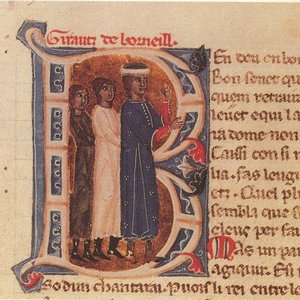 Girautz de borneill.
En deu en bon
Bon senet qu
quem retraur
leuet equi la
na dome non
Caissi con si
lia . fas lengu
er. Quel plu
sembla que
cleus per fau
Mas un pa
agiqur. Ei d
so dun chantarai. Puois li rei entre le